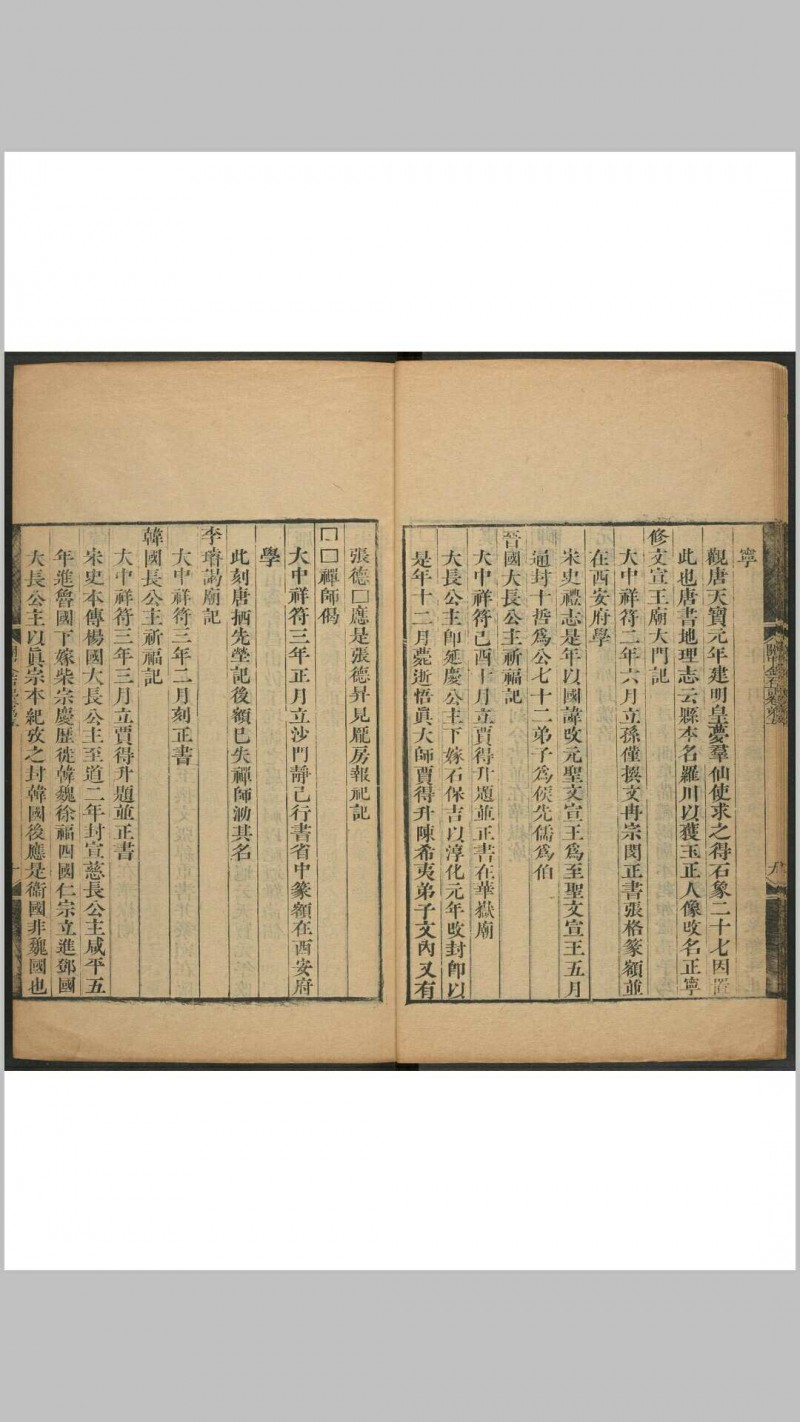 寧
觀唐天寶元年建明皇夢羣仙使求之得石象二十七因置
此也唐書地理志云縣本名羅川以獲玉正人像改名正寧
修文宣王廟大門記
大中祥符二年六月立孫僅撰文冉宗閔正書張格篆額並
在西安府學
宋史禮志是年以國諱改元聖文宣王為至聖文宣王五月
通封十哲爲公七十二弟子爲侯先儒爲伯
晉國大長公主祈福記
大中祥符己酉十月立賈得升題並正書在華嶽廟
大長公主卽延慶公主下嫁石保吉以淳化元年改封卽以
是年十二月薨逝悟眞大師賈得升陳希夷弟子文內又有
張德□應是張德昇見厖房報祀記
□□禪師偈
大中祥符三年正月立沙門靜己行書省中篆額在西安府
學
此刻唐栖先塋記後額已失禪師泐其名
李瑃謁廟記
大中祥符三年二月刻正書
韓國長公主祈福記
大中祥符三年三月立賈得升題並正書
宋史本傳楊國大長公主至道二年封宣慈長公主咸平五
年進魯國下嫁柴宗慶歷徙韓魏徐福四國仁宗立進鄧國
大長公主以眞宗本紀攷之封韓國後應是衞國非魏國也